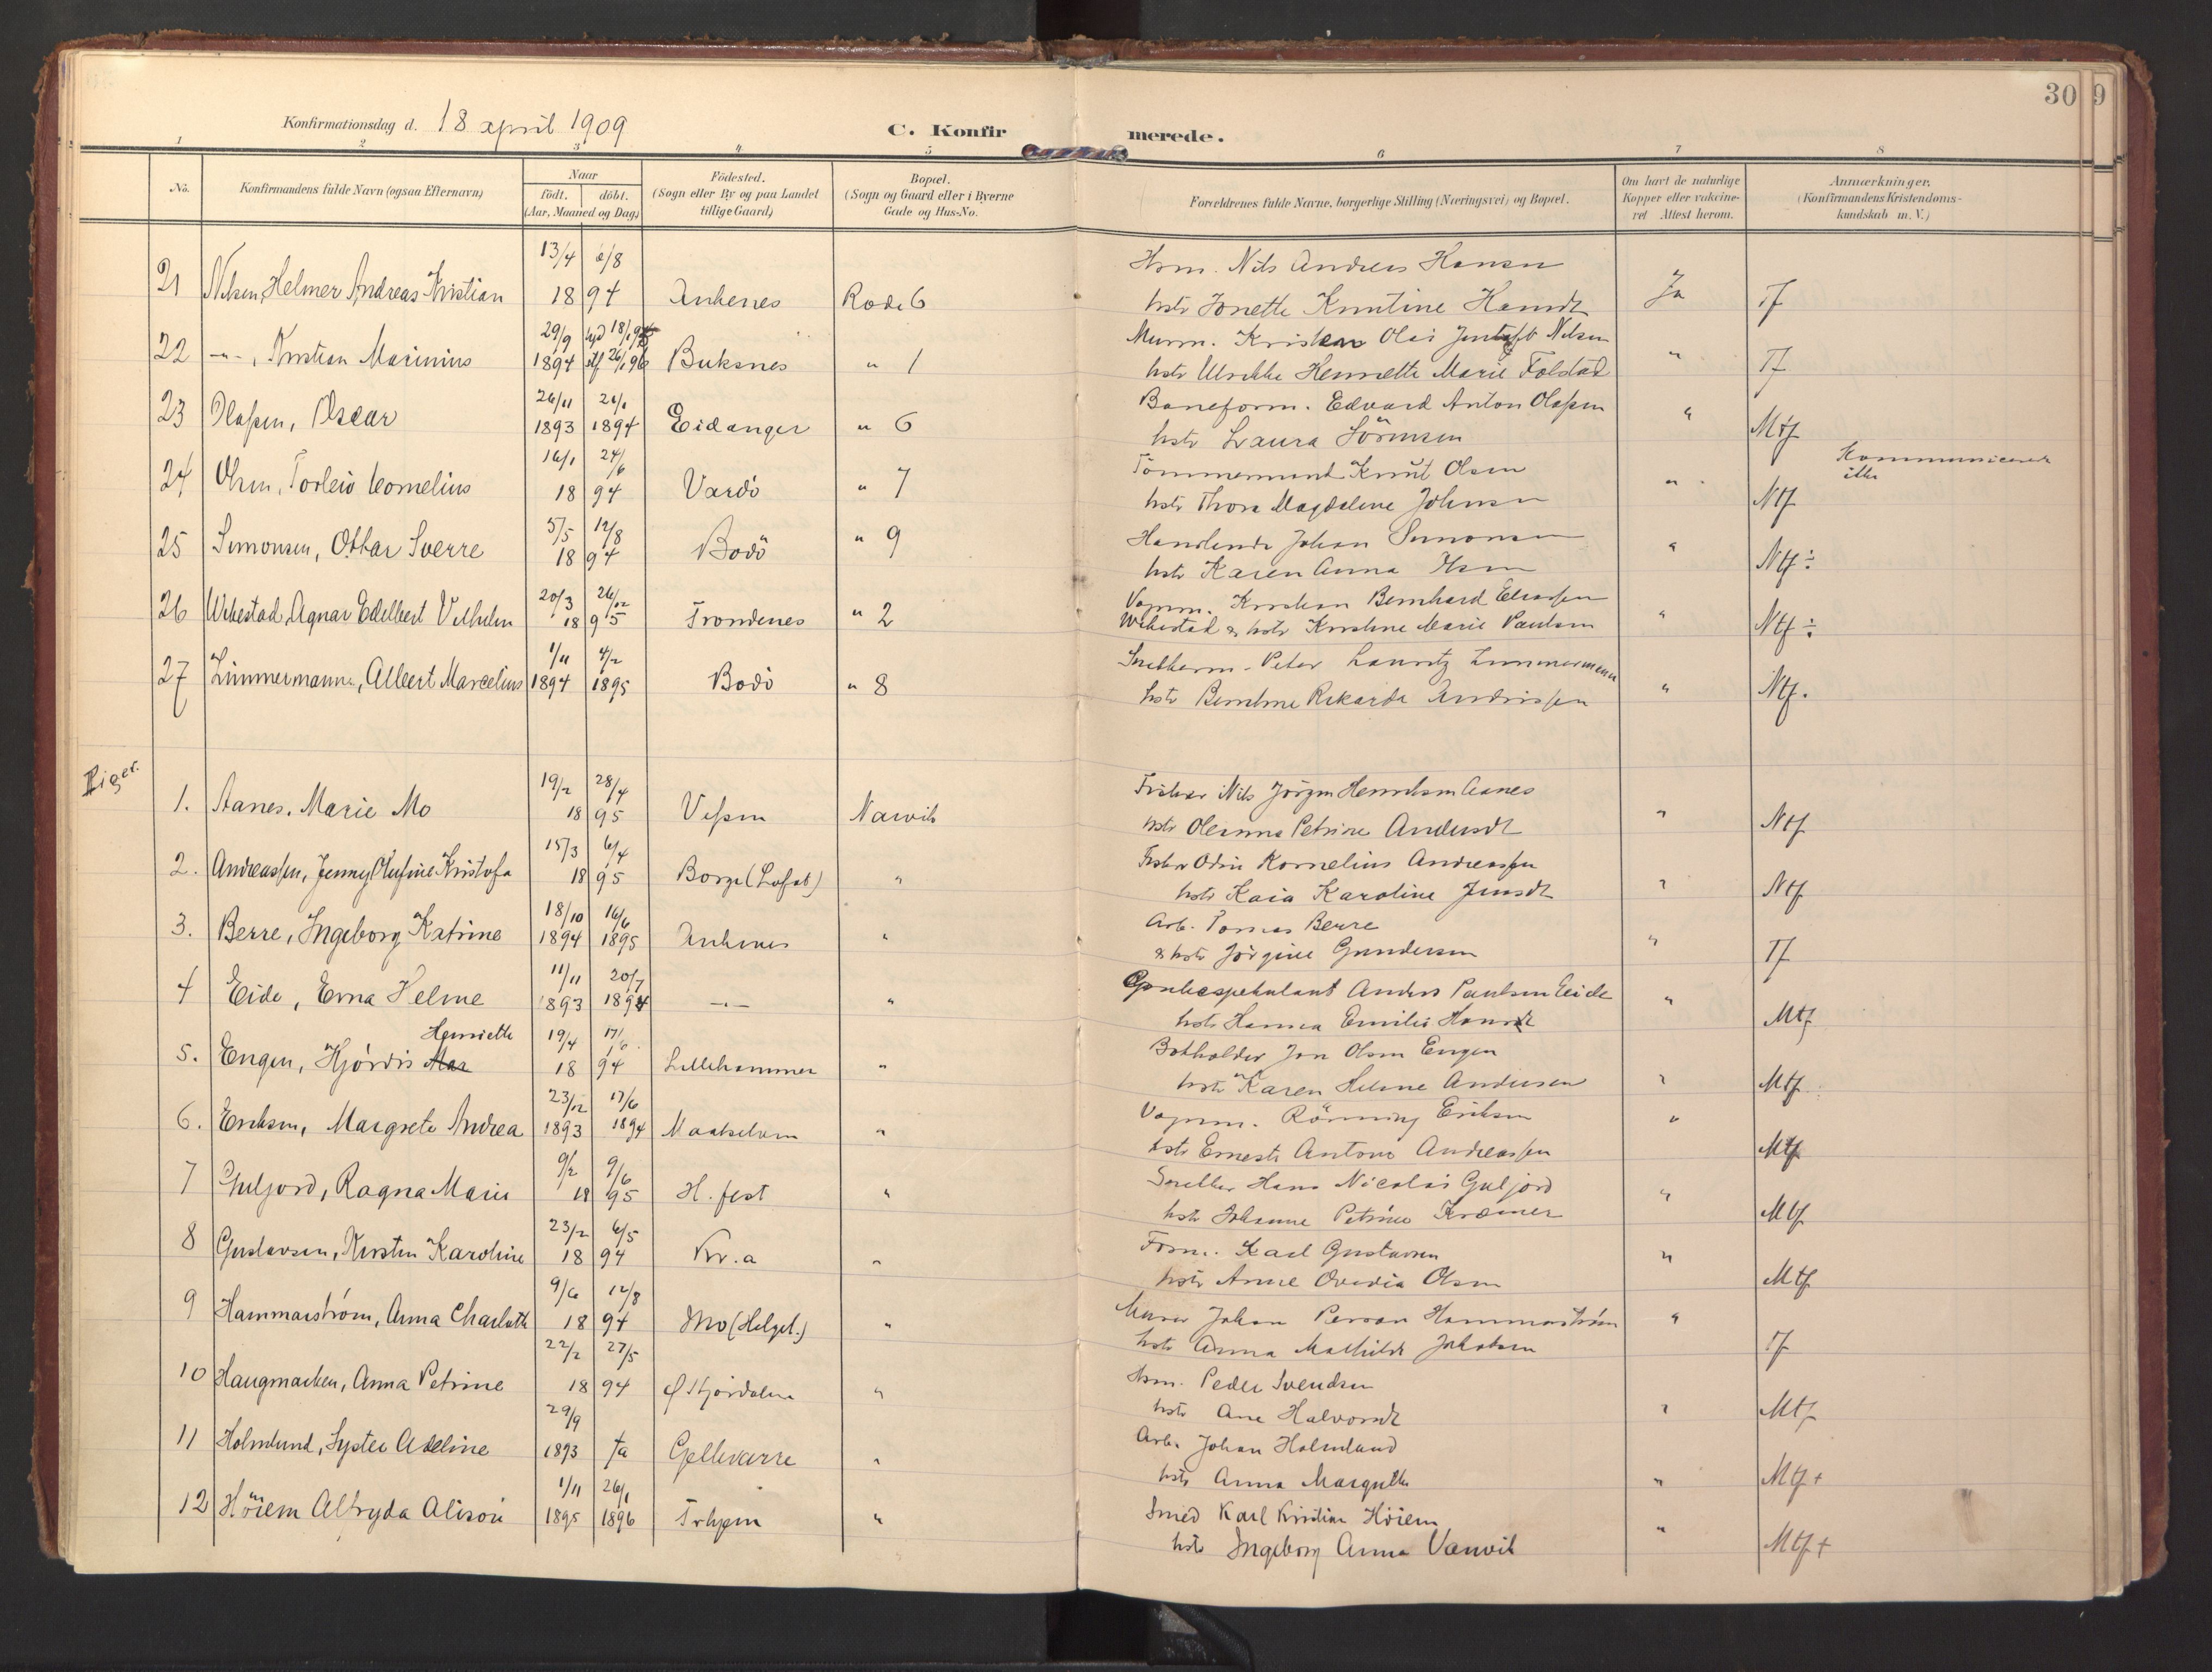 30 9
Konfirmationsdag d. 18 april 1909
C. Konfirmerede.
1 2 3 4 5 6 7 8
No.
Konfirmandens fulde Navn (ogsaa Efternavn)
Naar
födt. döbt.
(Aar, Maaned og Dag)
Födested.
(Sogn eller By og paa Landet
tillige Gaard)
Bopæl.
(Sogn og Gaard eller i Byerne
Gade og Hus-No.
Forældrenes fulde Navne, borgerlige Stilling (Næringsvei) og Bopæl.
Om havt de naturlige
Kopper eller vakcine-
ret Attest herom.
Anmærkninger.
(Konfirmandens Kristendoms-
kundskab m.V.)
13/4 6/8 Hsm. Nils Andreas Hansen
21 Nilsen, Helmer Andreas Kristian 18 94 Ankenes Rode 6 hstr Jonette Knutine Hansdt Ja Tf
29/9 18/1 95 Murm. Kristen Olai Nilsen
22 -"-, Kristian Marinius 1894 stf 26/1 96 Buksnes " 1 hstr Ulrikke Henriette Marie Folstad " Tf
26/11 21/1 Baneform. Edvard Anton Olaſsen
23 Olaſsen, Oscar 1893 1894 Eidanger " 6 hstr Laura Sörensen " Mtf
16/1 24/6 Tömmermand Knut Olsen Kommunicerede
24 Olsen, Torleiv Cornelius 18 94 Vardö " 7 hstr Thora Magdalene Johnsen " Ntf ikke
5/5 12/8 Handlende Johan Simonsen
25 Simonsen, Ottar Sverre 18 94 Bodö " 9 hstr Karen Anna " Ntf ÷
20/3 26/12 Vognm. Kristian Bernhard Eliasſen
26 Wikestad, Agnar Edelbert Vilhelm 18 95 Trondenes " 2 Wikestad & hstr Kristine Marie Paulsen " Ntf ÷
1/11 4/2 Snekkerm. Peter Lauritz Zimmermann
27 Zimmermann, Albert Marcelius 1894 1895 Bodö " 8 hstr Berntine Rikarda Andriſsen " Ntf.
Piger.
19/2 28/4 Fisker Nils Jörgen Henriksen Aanes
1. Aanes, Marie Mo 18 95 Veſsen Narvik hstr Olerina Petrine Andersdt " Ntf
15/3 6/4 Fisker Odin Kornelius Andreasſen
2. Andreasſen, Jenny Olufine Kristofa 18 95 Borge (Lofot) " hstr Kaia Karoline Jensdt " Ntf
18/10 16/6 Arb. Tomas Berre
3. Berre, Ingeborg Katrine 1894 1895 Ankenes " & hstr Jörgine Gundersen " Tf
11/11 20/7 Grubespekulant Anders Paulsen Eide
4 Eide, Erna Helene 1893 1894 -"- " hstr Hanna Emilie Hansdt " Mtf
Henriette 19/4 17/6 Botholder Jon Olsen Engen
5. Engen, Hjördis Mar 18 94 Lillehammer " hstr Karen Helene Andersen " Mtf
23/12 17/6 Vognm. Rönning Eriksen
6. Eriksen, Margrete Andrea 1893 1894 Maalselven " hstr Ernest Antonie Andreasſen " Mtf
9/2 9/6 Snekker Hans Nicolai Guljord
7 Guljord, Ragna Marie 18 95 H. fest " hstr Johanne Petrine Kræmer " Mtf
23/2 6/5 Form. Karl Gustavsen
8 Gustavsen, Kirsten Karoline 18 94 Kr.a " hstr Anne Ovedia Olsen " Mtf
9/6 12/8 Murer Johan Persson Hammarström
9 Hammarström, Anna Charlotte 18 94 Mo (Helgel.) " hstr Anna Mathilde Jakobsen " Tf
22/2 27/5 Hsm. Peder Svendsen
10 Haugmarken, Anna Petrine 18 94 Ø Stjördalen " hstr Ane Halvorsdt " Mtf
29/9 Arb. Johan Holmlund
11 Holmlund, Syster Adeline 1893 Ja Gellivarre " hstr Anna Margretha " Mtf +
1/11 26/1 Smed Karl Kristian Höiem
12 Höiem Alfryda Alison 1895 1896 Trhjem " hstr Ingeborg Anna Vanvik " Mtf +